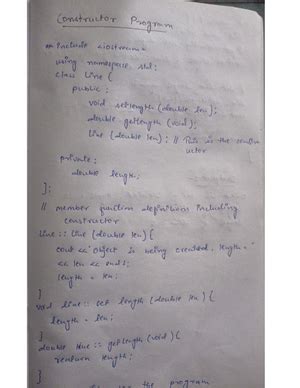 Constructor Program
# include <iostream>
using namespace std;
class Line {
public:
void setLength (double len);
double getLength (void);
Line (double len); // This is the constr
uctor
private:
double length;
};
// member function definitions including
constructor
Line :: Line (double len) {
cout << "Object is being created, length = "
<< len << endl;
length = len;
}
void Line :: set length (double len) {
length = len;
}
double Line :: getLength (void) {
return length;
}
the program